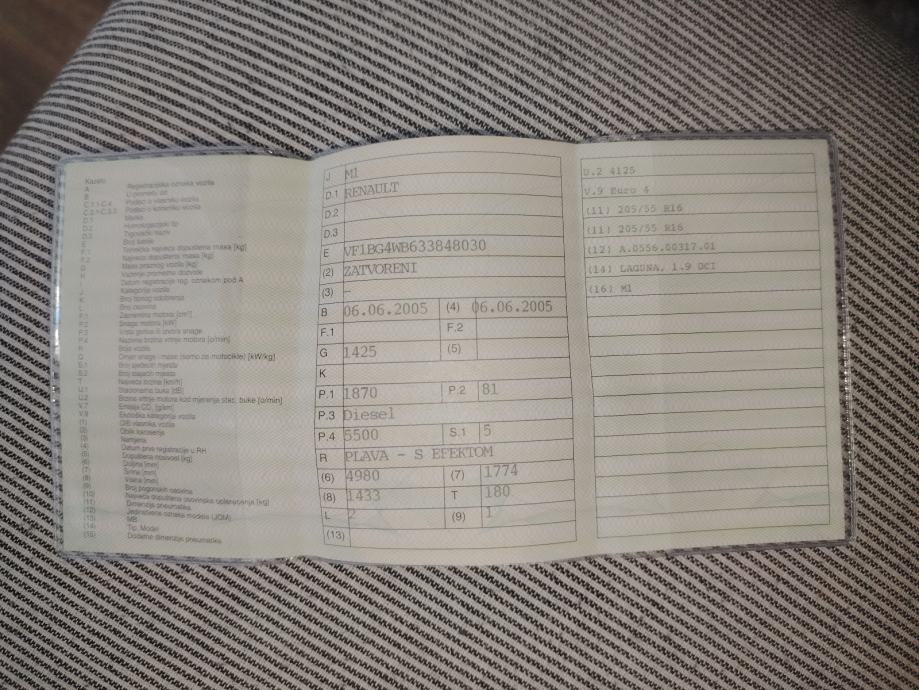 Kazalo
A Registracijska oznaka vozila
B U prometu od
C.1.1-C.4 Podaci o vlasniku vozila
C.3.1-C.3.3 Podaci o korisniku vozila
D.1 Marka
D.2 Homologacijski tip
D.3 Trgovački naziv
E Broj šasije
F.1 Tehnička najveća dopuštena masa [kg]
F.2 Najveća dopuštena masa [kg]
G Masa praznog vozila [kg]
H Važenje prometne dozvole
I Datum registracije reg. oznakom pod A
J Kategorija vozila
K Broj tipnog odobrenja
L Broj osovina
P.1 Zapremina motora [cm³]
P.2 Snaga motora [kW]
P.3 Vrsta goriva ili izvora snage
P.4 Nazivna brzina vrtnje motora [o/min]
R Boja vozila
Q Omjer snage i mase (samo za motocikle) [kW/kg]
S.1 Broj sjedećih mjesta
S.2 Broj stajaćih mjesta
T Najveća brzina [km/h]
U.1 Stacionarna buka [dB]
U.2 Brzina vrtnje motora kod mjerenja stac. buke [o/min]
V.7 Emisija CO₂ [g/km]
V.9 Ekološka kategorija vozila
(1) OIB vlasnika vozila
(2) Oblik karoserije
(3) Namjena
(4) Datum prve registracije u RH
(5) Dopuštena nosivost [kg]
(6) Duljina [mm]
(7) Širina [mm]
(8) Visina [mm]
(9) Broj pogonskih osovina
(10) Najveće dopuštena osovinska opterećenja [kg]
(11) Dimenzije pneumatika
(12) Jedinstvena oznaka modela (JOM)
(13) MB
(14) Tip, Model
(15) Dodatne dimenzije pneumatika
J M1
D.1 RENAULT
D.2
D.3
E VF1BG4WB633848030
(2) ZATVORENI
(3) –
B 06.06.2005 (4) 06.06.2005
F.1 F.2
G 1425 (5)
K
P.1 1870 P.2 81
P.3 Diesel
P.4 5500 S.1 5
R PLAVA - S EFEKTOM
(6) 4980 (7) 1774
(8) 1433 T 180
L 2 (9) 1
(13)
U.2 4125
V.9 Euro 4
(11) 205/55 R16
(11) 205/55 R16
(12) A.0556.00317.01
(14) LAGUNA, 1.9 DCI
(16) M1